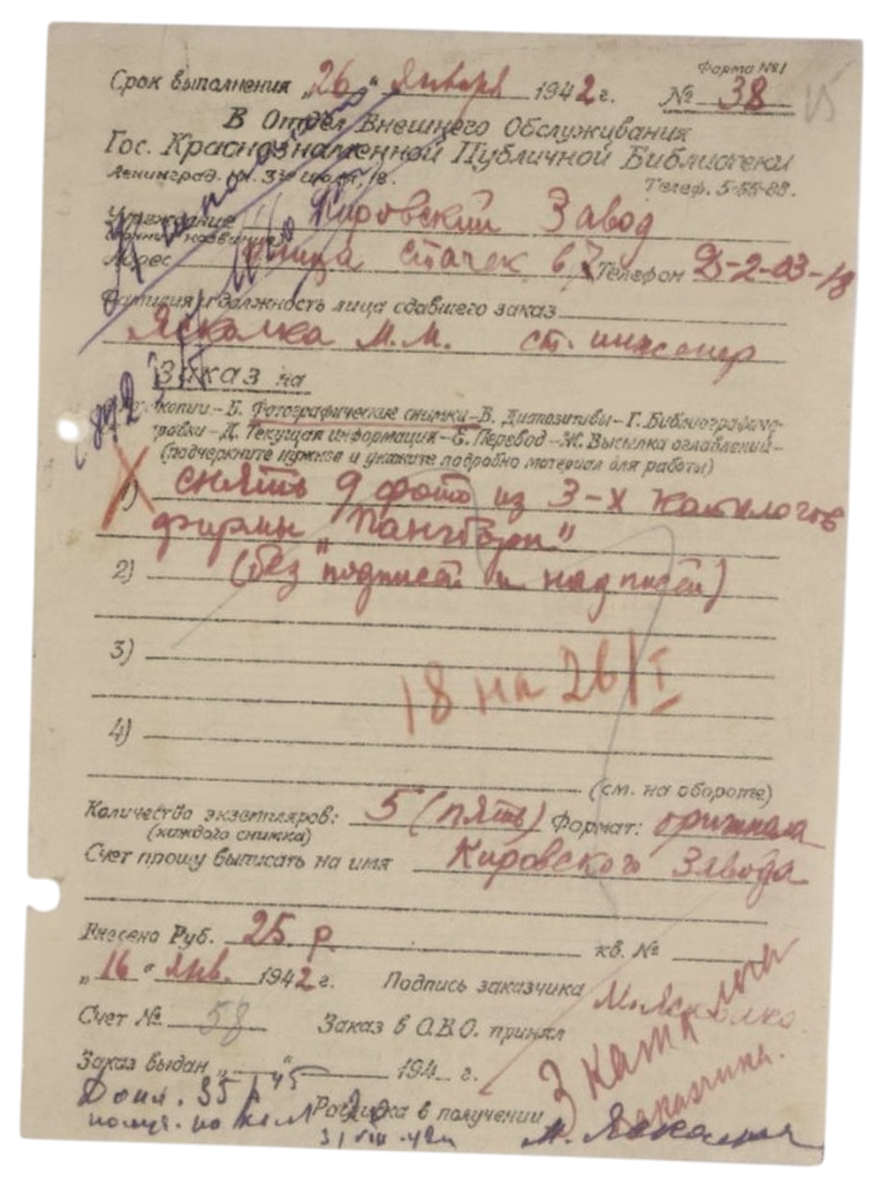 Форма №1
Срок выполнения „26“ Января 1942 г. № 38
15
В Отдел Внешнего Обслуживания
Гос. Краснознаменной Публичной Библиотеки
Ленинград. пл. 3го июля, 18.
Телеф. 5-55-89.
Учреждение Кировский Завод
Адрес улица Стачек 67 Телефон Д-2-03-18
Фамилия и должность лица сдавшего заказ
Ясколка М.М. ст. инженер
Заказ на
копии.–Б. Фотографические снимки–В. Диапозитивы–Г. Библиографиче-
–Д. Текущая информация–Е. Перевод–Ж. Высылка оглавлений–
(подчеркните нужное и укажите подробно материал для работы)
1) снять 9 фото из 3-х каталогов
фирмы "Пангборн"
2) (без подписей и надписей)
3)
18 на 26/I
4)
(см. на обороте)
Количество экземпляров: 5 (пять) Формат: оригинала
(каждого снимка)
Счет прошу выписать на имя Кировского Завода
Внесено Руб. 25 р. кв. №
„16“ янв. 1942 г. Подпись заказчика М.Ясколка
Счет № 58 Заказ в О.В.О. принял
3 каталога
заказчика.
Заказ выдан „ “ 194 г.
Доп. 35 р 45
Расписка в получении М. Ясколка
31/VIII-42г